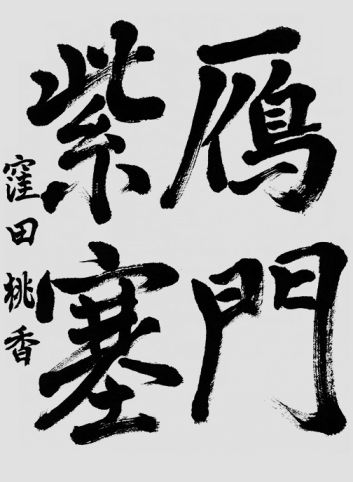 雁門
紫塞
窪田桃香